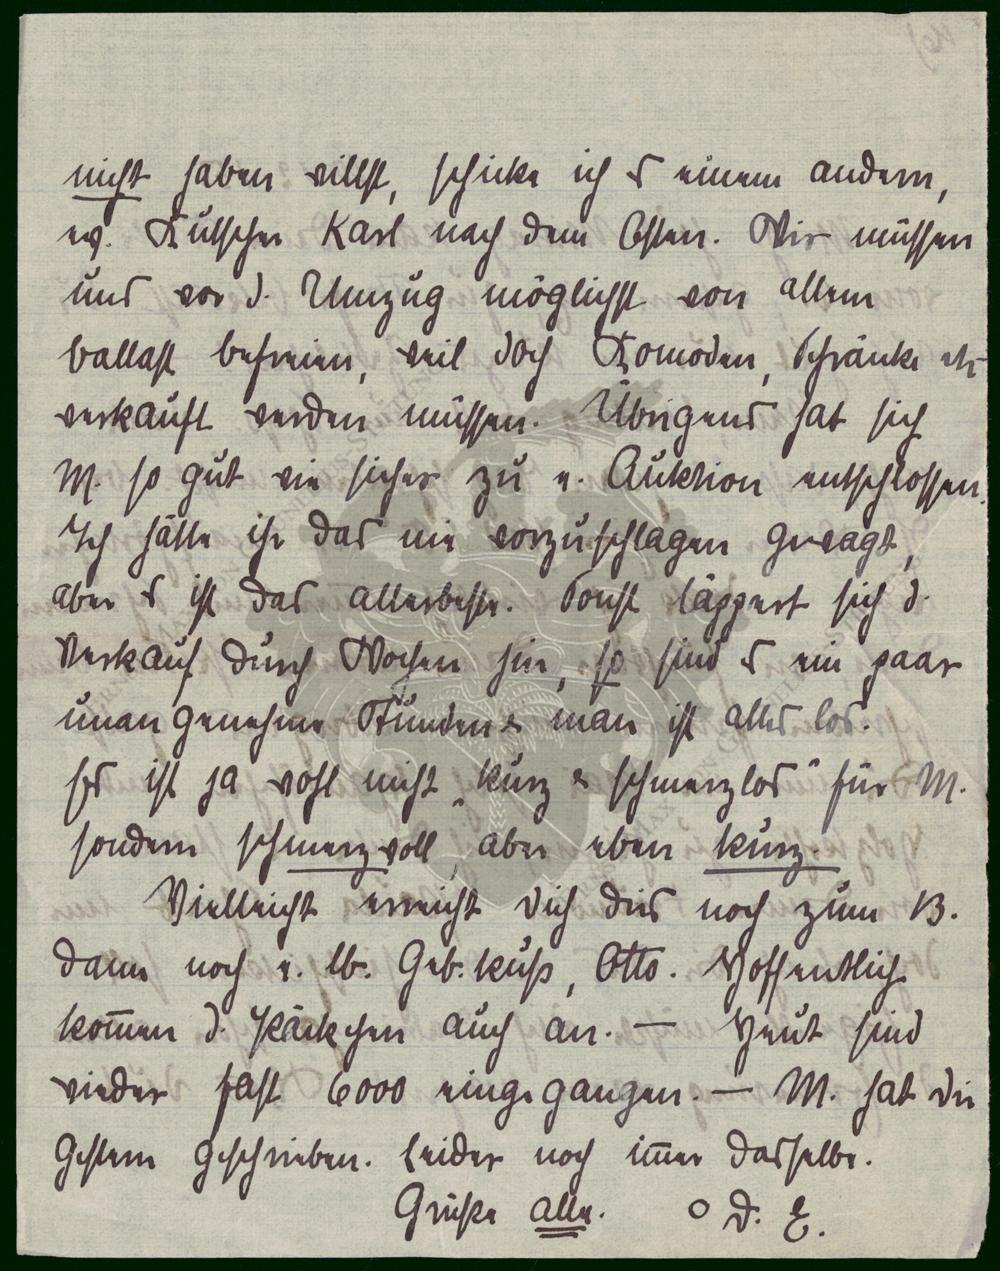 nicht haben willst, schicke ich es einem andern,
ev. Kutscher Karl nach dem Osten. Wir müssen
uns vor d. Umzug möglichst von allem
ballast befreien, weil doch Komoden, Schränke etc
verkauft werden müssen. Übrigens hat sich
M. so gut wie sicher zu e. Auktion entschlossen.
Ich hätte ihr das nie vorzuschlagen gewagt,
aber es ist das allerbeste. Sonst läppert sich d.
Verkauf durch Wochen hin, so sind es ein paar
unangenehme Stunden & man ist alles los.
Es ist ja wohl nicht „kurz & schmerzlos" für M.
sondern schmerzvoll, aber eben kurz.
Vielleicht erreicht Dich dies noch zum 13.
dann noch e. lb. Geb.kuß, Otto. Hoffentlich
kom̅en d. Päckchen auch an. — Heut sind
wieder fast 6000 eingegangen. — M. hat Dir
gestern geschrieben. Leider noch im̅er dasselbe.
Grüße alle. D. E.